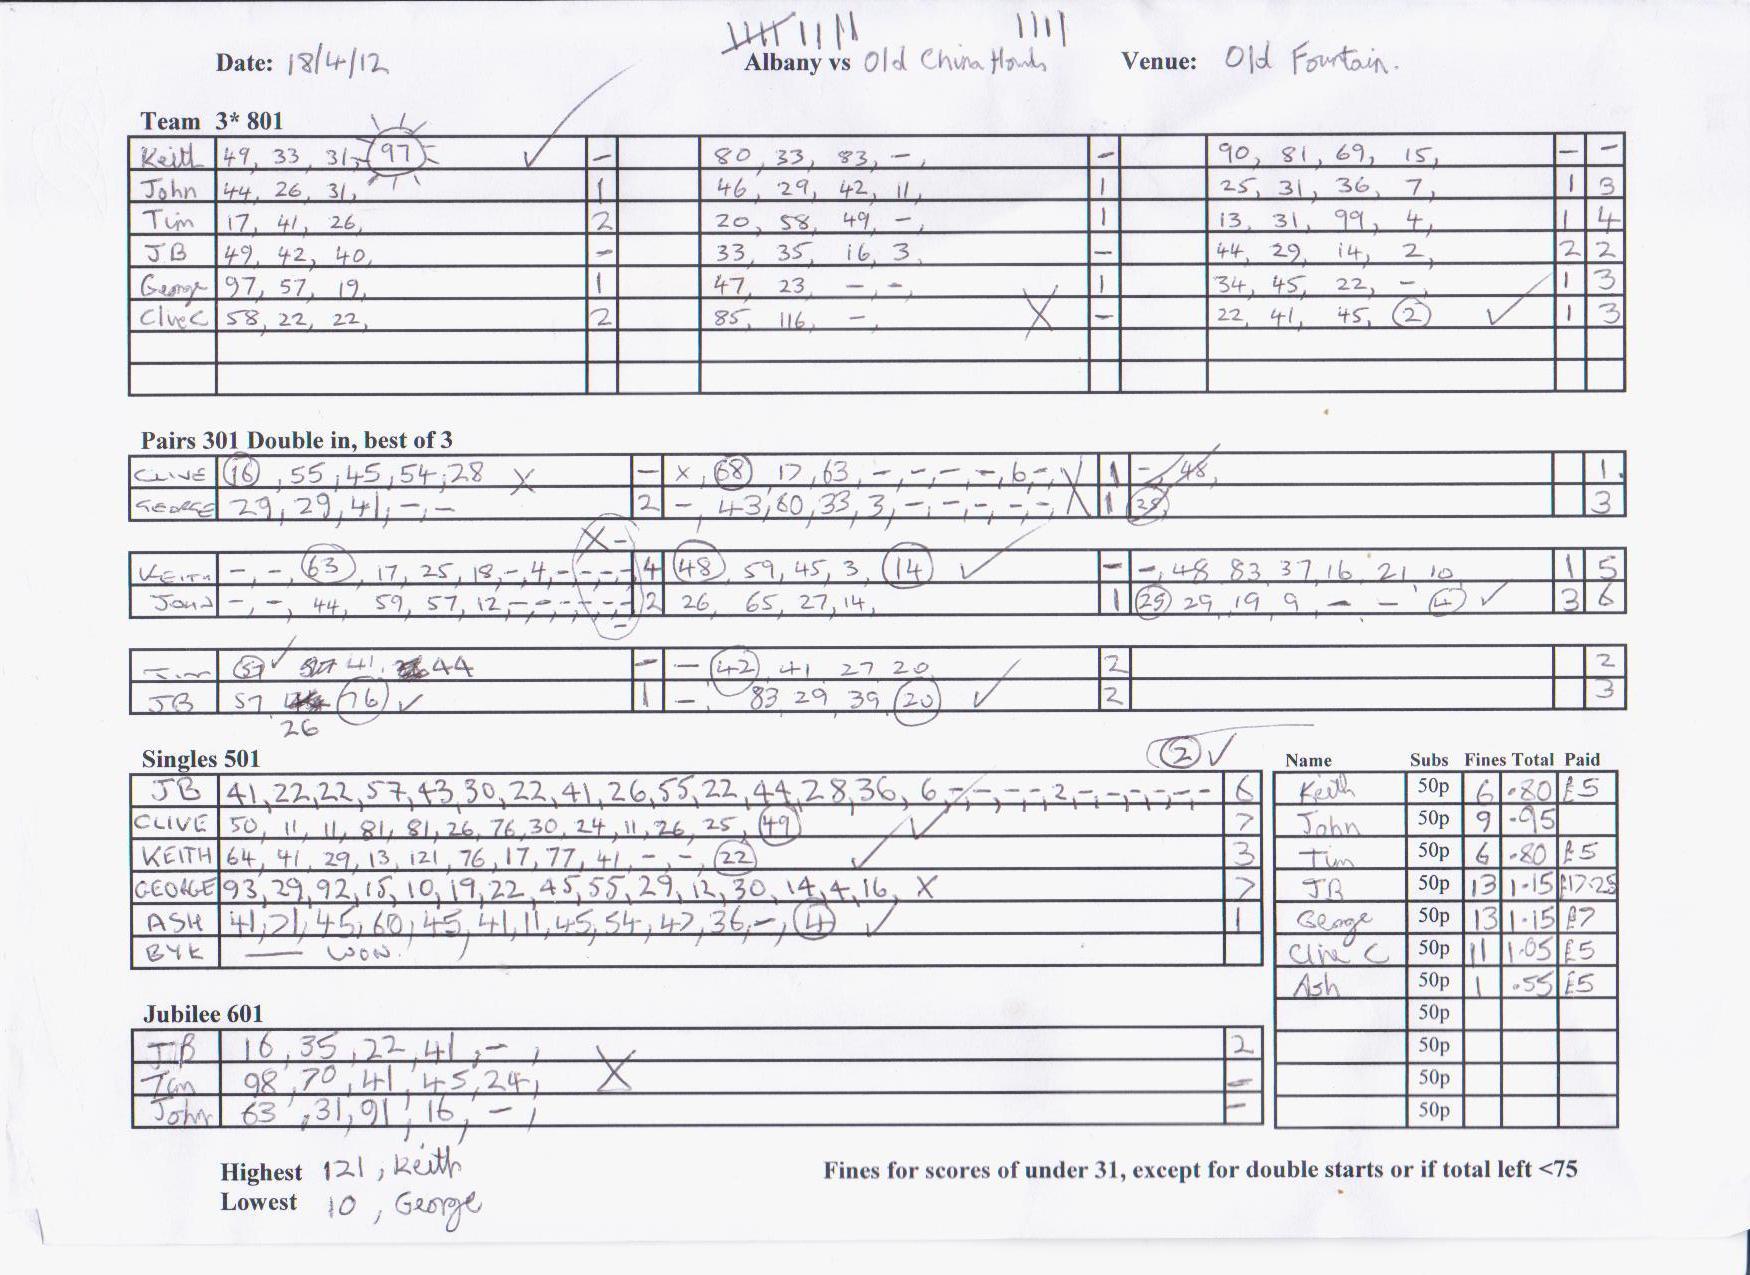 Date: 18/4/12 Albany vs Old China Hands Venue: Old Fountain.
Team 3* 801
Keith 49, 33, 31, 97 - 80, 33, 83, -, - 90, 81, 69, 15, - -
John 44, 26, 31, 1 46, 29, 42, 11, 1 25, 31, 36, 7, 1 3
Tim 17, 41, 26, 2 20, 58, 49, -, 1 13, 31, 99, 4, 1 4
JB 49, 42, 40, - 33, 35, 16, 3, - 44, 29, 14, 2, 2 2
George 97, 57, 19, 1 47, 23, -, -, 1 34, 45, 22, -, 1 3
Clive C 58, 22, 22, 2 85, 116, -, X - 22, 41, 45, 2 1 3
Pairs 301 Double in, best of 3
CLIVE 16, 55, 45, 54, 28 X - x, 68 17, 63, -, -, -, -, 6, -, X 1 -, 48, 1.
GEORGE 29, 29, 41, -, - 2 -, 43, 60, 33, 3, -, -, -, -, -, 1 3
X -
KEITH -, -, 63, 17, 25, 18, -, 4, -, -, -, -, 4 48, 59, 45, 3, 14 - -, 48 83, 37, 16, 21, 10 1 5
John -, -, 44, 59, 57, 12, -, -, -, -, -, -, 2 26, 65, 27, 14, 1 29 19 9, - - 4 3 6
-
Tim 57 41, 44 - - 42, 41, 27 20, 2 2
JB 57 76 1 -, 83 29 39 20 2 3
26
Singles 501 2
JB 41, 22, 22, 57, 43, 30, 22, 41, 26, 55, 22, 44, 28, 36, 6, -, -, -, -, 2, -, -, -, -, -, - 6
CLIVE 50, 11, 11, 81, 81, 26, 76, 30, 24, 11, 26, 25, 49 7
KEITH 64, 41, 29, 13, 121, 76, 17, 77, 41, -, -, 22 3
GEORGE 93, 29, 92, 15, 10, 19, 22, 45, 55, 29, 12, 30, 14, 4, 16, X 7
ASH 41, 71, 45, 60, 45, 41, 11, 45, 54, 47, 36, -, 4 1
BYE — WON.
Name Subs Fines Total Paid
Keith 50p 6 .80 £5
John 50p 9 .95
Tim 50p 6 .80 £5
JB 50p 13 1.15 £17.25
George 50p 13 1.15 £7
Clive C 50p 11 1.05 £5
Ash 50p 1 .55 £5
50p
50p
50p
50p
Jubilee 601
JB 16, 35, 22, 41, -, 2
Tim 98, 70, 41, 45, 24, X -
John 63, 31, 91, 16, -, -
Highest 121, Keith
Lowest 10, George
Fines for scores of under 31, except for double starts or if total left <75